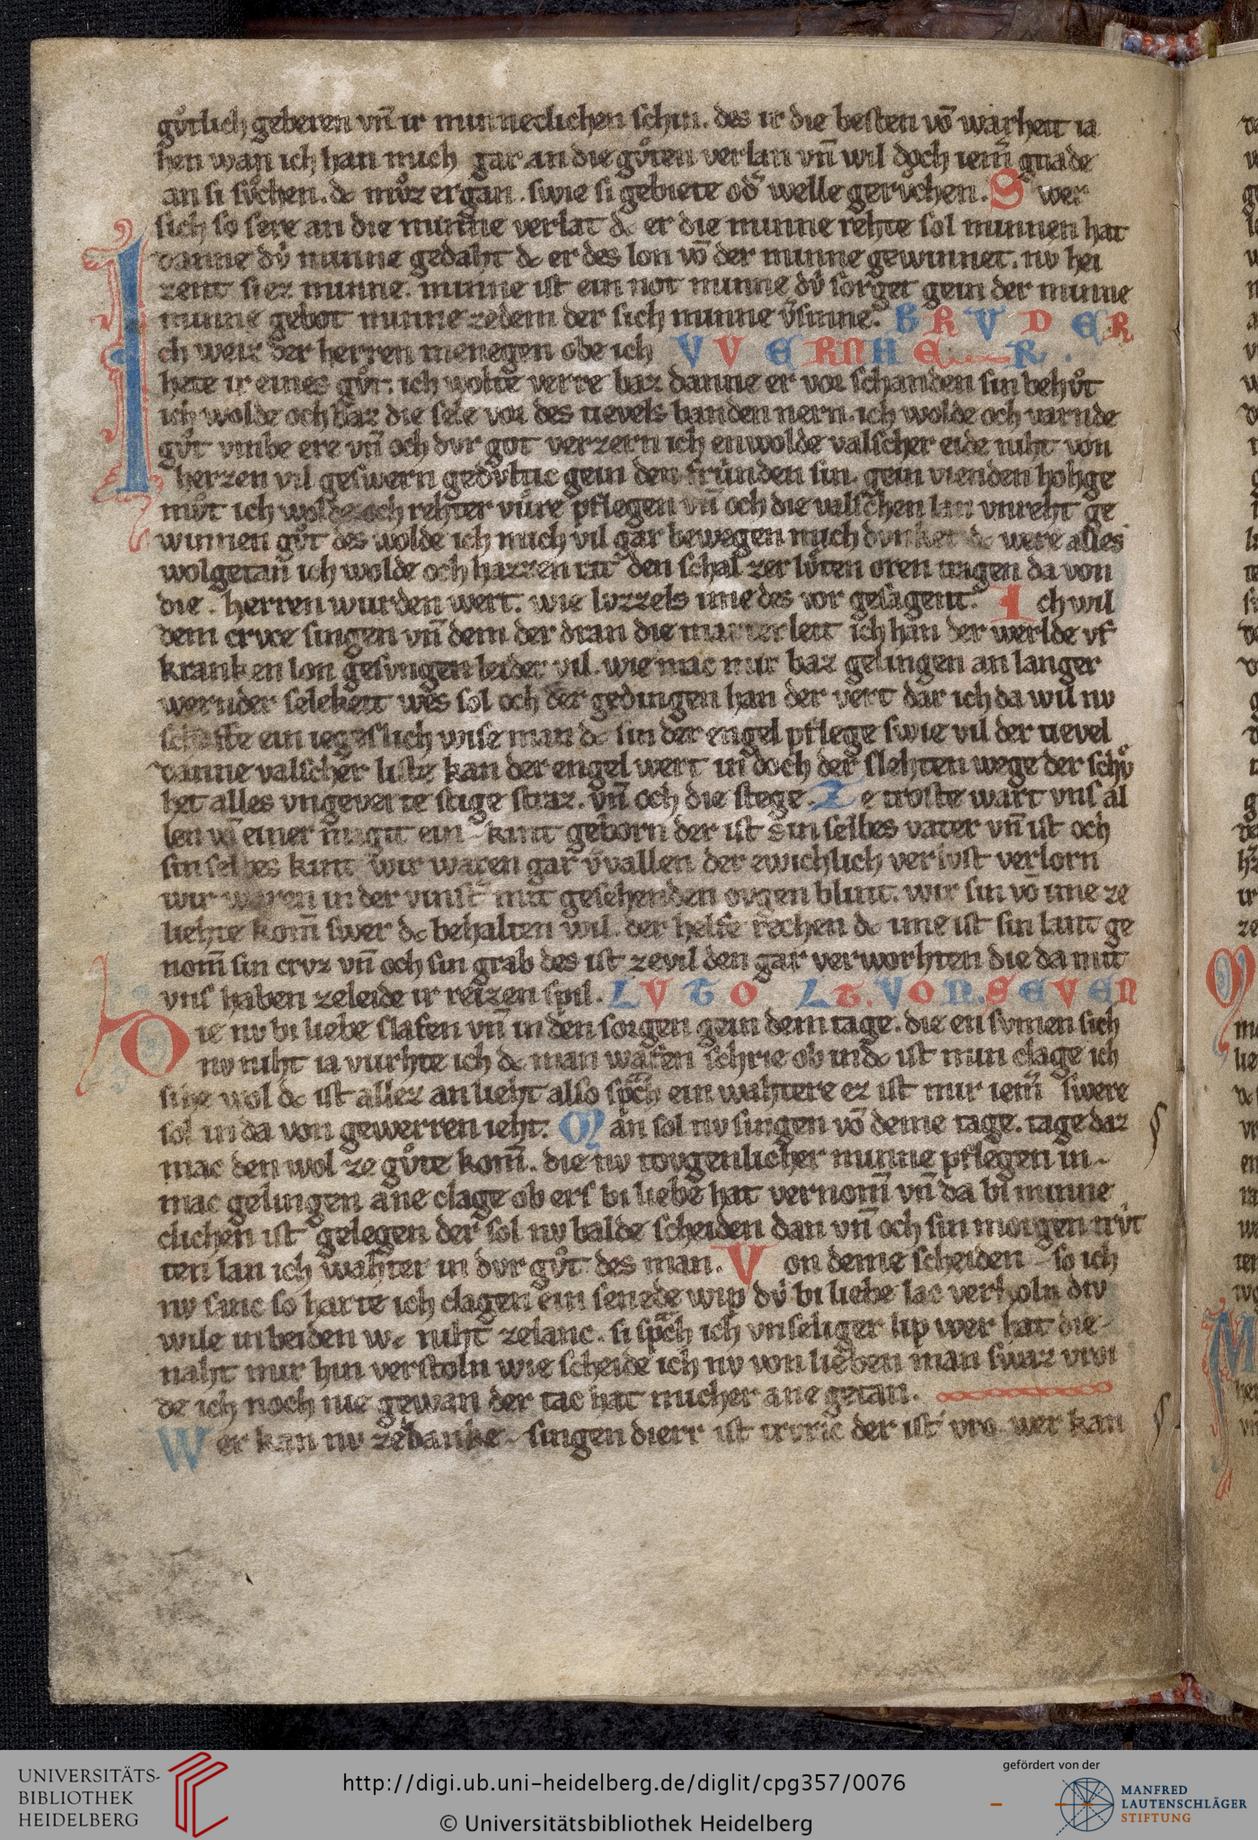 gůtlich geberen vn̄ ir minneclichen schin. des ir die besten vō warheit ia
hen wan ich han mich gar an die gůten verlan vn̄ wil doch iem̄ gnade
an si sůchen. dc můz ergan. swie si gebiete od̓ welle gerůchen. S wer
sich so sere an die minne verlat dc er die minne rehte sol minnen hat
danne dv̓ minne gedaht dc er des lon vō der minne gewinnet. nv hei
zent si ez minne. minne ist ein not minne dv̓ sorget gein der minne
minne gebot minne zedem der sich minne v̓sinne. BRVDER
Ich weiz der herren menegen obe ich VVERNHER.
hete ir eines gůt. ich wolte verre baz danne er vor schanden sin behůt
ich wolde och baz die sele vor des tievels banden nern. ich wolde och varnde
gůt vmbe ere vn̄ och dvr got verzern ich enwolde valscher eide niht von
herzen vil geswern gedvltic gein den frúnden sin. gein vienden hohge
můt ich wolde och rehter vůre pflegen vn̄ och die valschen lan vnreht ge
winnen gůt des wolde ich mich vil gar bewegen mich dvnket dc were alles
wolgetan ich wolde och hazzen rit den schal zer lvten oren tragen da von
die. herren wurden wert. wie lvzzels ime des vor gesagent. I ch wil
dem crvce singen vn̄ dem der dran die marter leit ich han der werlde vf
kranken lon gesvngen leider vil. wie mac mir baz gelingen an langer
wernder selekeit wes sol och der gedingen han der vert dar ich da wil nv
schaffe ein iegeslich wise man dc sin der engel pflege swie vil der tievel
danne valscher liste kan der engel wert in doch der slehten wege der schv̊
het alles vngeverte stige straz. vn̄ och die stege. Z e troste wart vns al
len vō einer magit ein kint geborn der ist sin selbes vater vn̄ ist och
sin selbes kint wir waren gar v̓vallen der zwichlich verlvst verlorn
wir waren in der vinst̓ mit gesehenden ovgen blint. wir sin vō ime ze
liehte kom̄ swer dc behalten wil. der helfe rechen dc ime ist sin lant ge
nom̄ sin crvz vn̄ och sin grab des ist zevil den gar verworhten die da mit
vns haben zeleide ir reizen spil. LVTOLT. VON. SEVEN
Die nv bi liebe slafen vn̄ in den sorgen gein dem tage. die en svmen sich
nv niht ia vurhte ich dc man wafen schrie ob in dc ist min clage ich
sihe wol dc ist allez an lieht also spͣch ein wahtere ez ist mir iem̄ swere
sol in da von gewerren ieht. M an sol nv singen vō deme tage. tage daz
mac den wol ze gůte kom̄. die nv tovgenlicher minne pflegen in
mac gelingen ane clage ob ers bi liebe hat vernom̄ vn̄ da bi minne
clichen ist gelegen der sol nv balde scheiden dan vn̄ och sin morgen mv̓t
ten lan ich wahter in dvr gůt des man. V on deme scheiden so ich
nv sanc so harte ich clagen ein senede wip dv̓ bi liebe lac verholn div
wile in beiden wc niht zelanc. si spͣch ich vnseliger lip wer hat die
naht mir hin verstoln wie scheide ich nv von lieben man swaz vroi
de ich noch nie gewan der tac hat micher ane getan.
Wer kan nv zedanke singen dierr ist trvric der ist vro. wer kan
UNIVERSITÄTS-
BIBLIOTHEK
HEIDELBERG
http://digi.ub.uni-heidelberg.de/diglit/cpg357/0076
© Universitätsbibliothek Heidelberg
gefördert von der
MANFRED
LAUTENSCHLÄGER
STIFTUNG